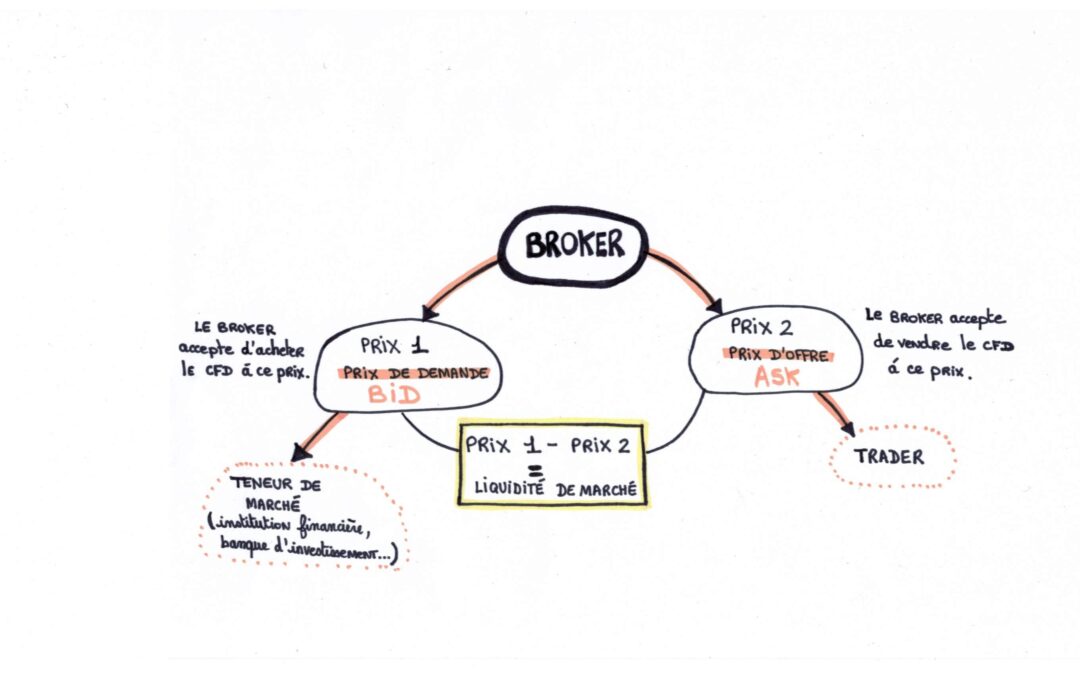 BROKER
LE BROKER
accepte d'acheter
le CFD á ce prix.
PRIX 1
PRIX DE DEMANDE
BID
PRIX 2
PRIX D'OFFRE
ASK
Le BROKER accepte
de vendre le CFD
á ce prix.
PRIX 1 - PRIX 2
=
LIQUIDITÉ DE MARCHÉ
TENEUR DE
MARCHÉ
(institution financière,
banque d'investissement...)
TRADER